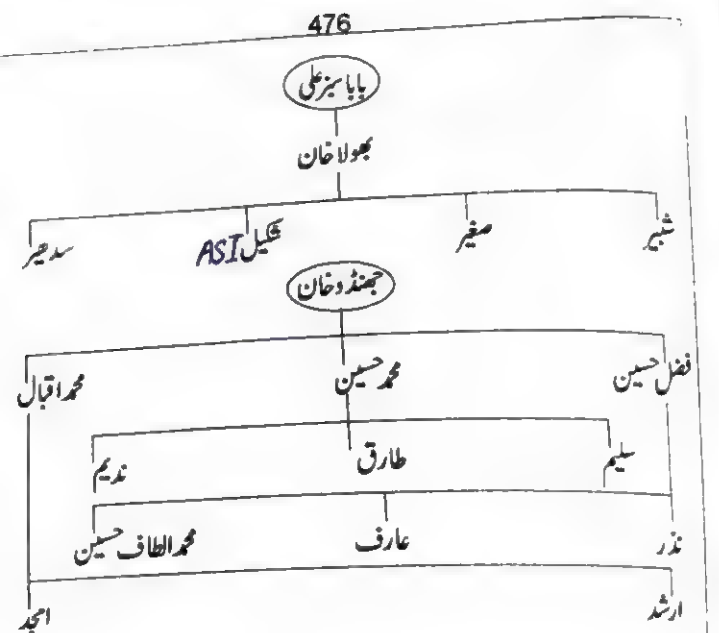 476
بابا سبز علی
بھولا خان
شبیر صغیر شکیل ASI سدھیر
جھنڈو خان
فضل حسین محمد حسین محمد اقبال
سلیم طارق ندیم
نذر عارف محمد الطاف حسین
ارشد امجد